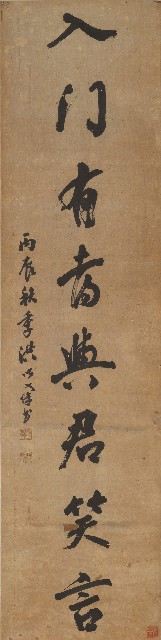 入门有喜與君笑言
丙辰秋季洪